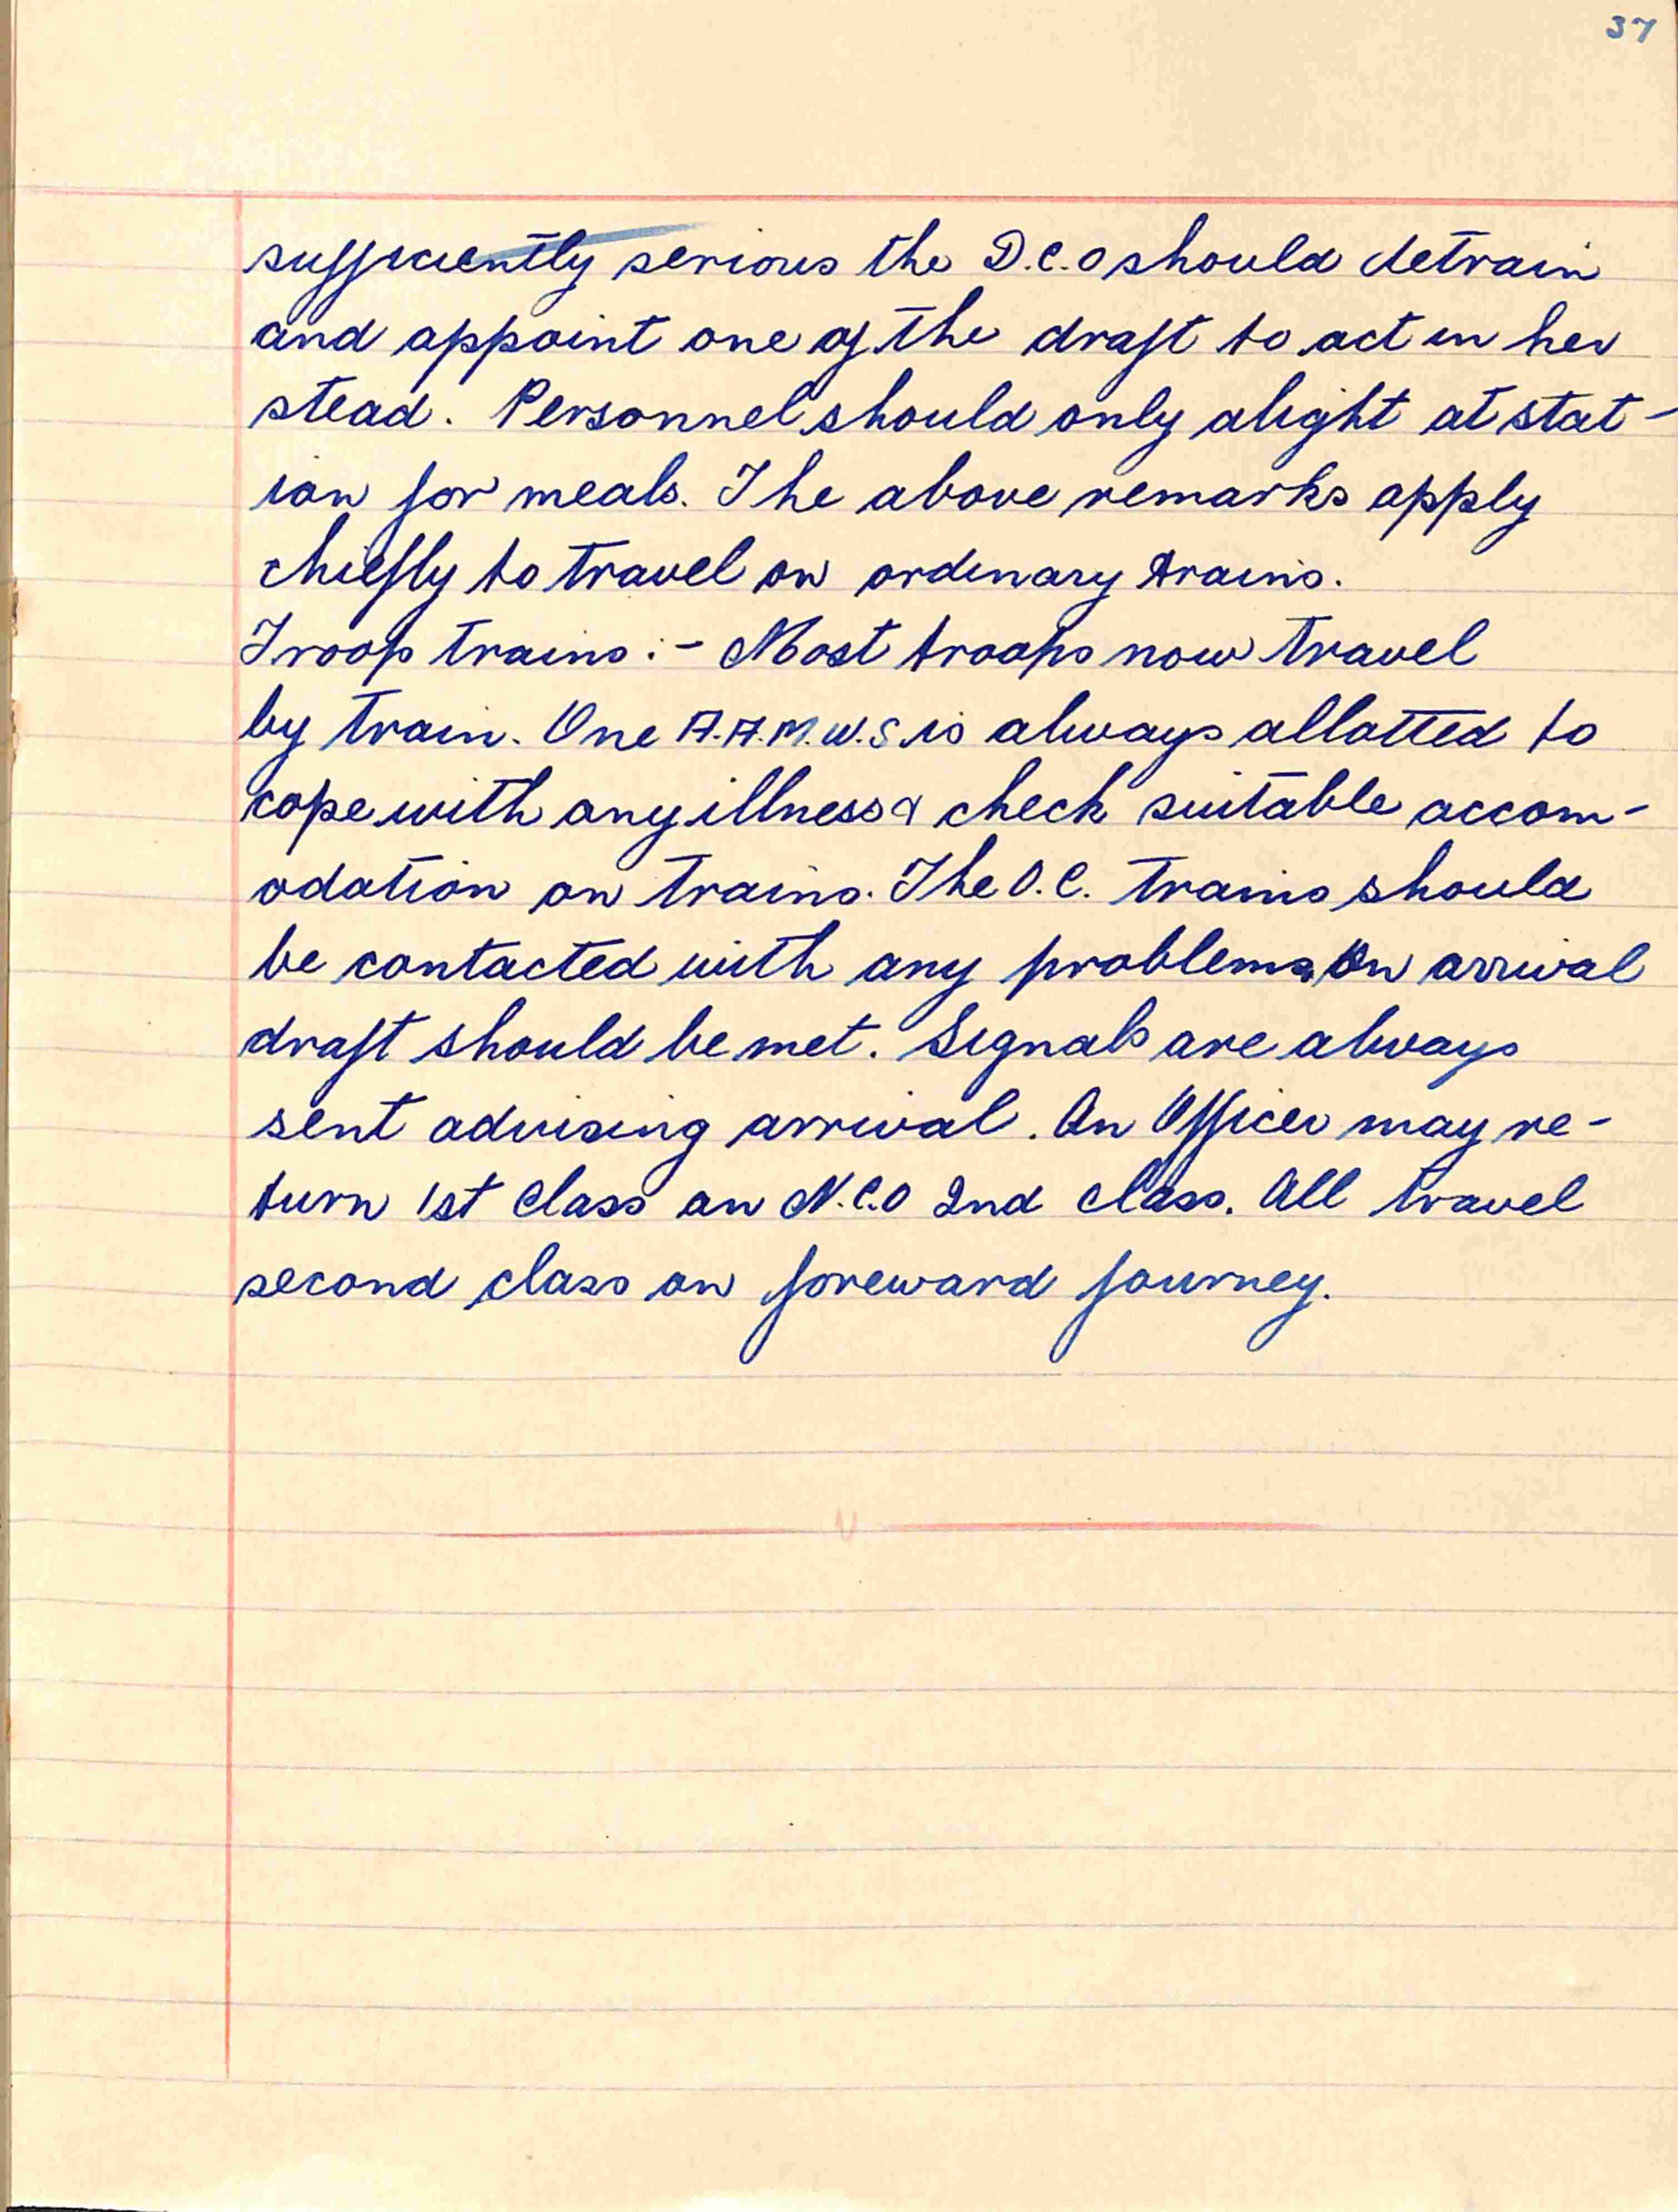 37
sufficiently serious the D.C.O should detrain
and appoint one of the draft to act in her
stead. Personnel should only alight at stat-
ion for meals. The above remarks apply
chiefly to travel on ordinary trains.
Troop trains :- Most troops now travel
by train. One A.A.M.W.S is always allotted to
cope with any illness & check suitable accom-
odation on trains. The O.C. trains should
be contacted with any problems. On arrival
draft should be met. Signals are always
sent advising arrival. An Officer may re-
turn 1st Class an N.C.O 2nd class. All travel
second class on foreward journey.